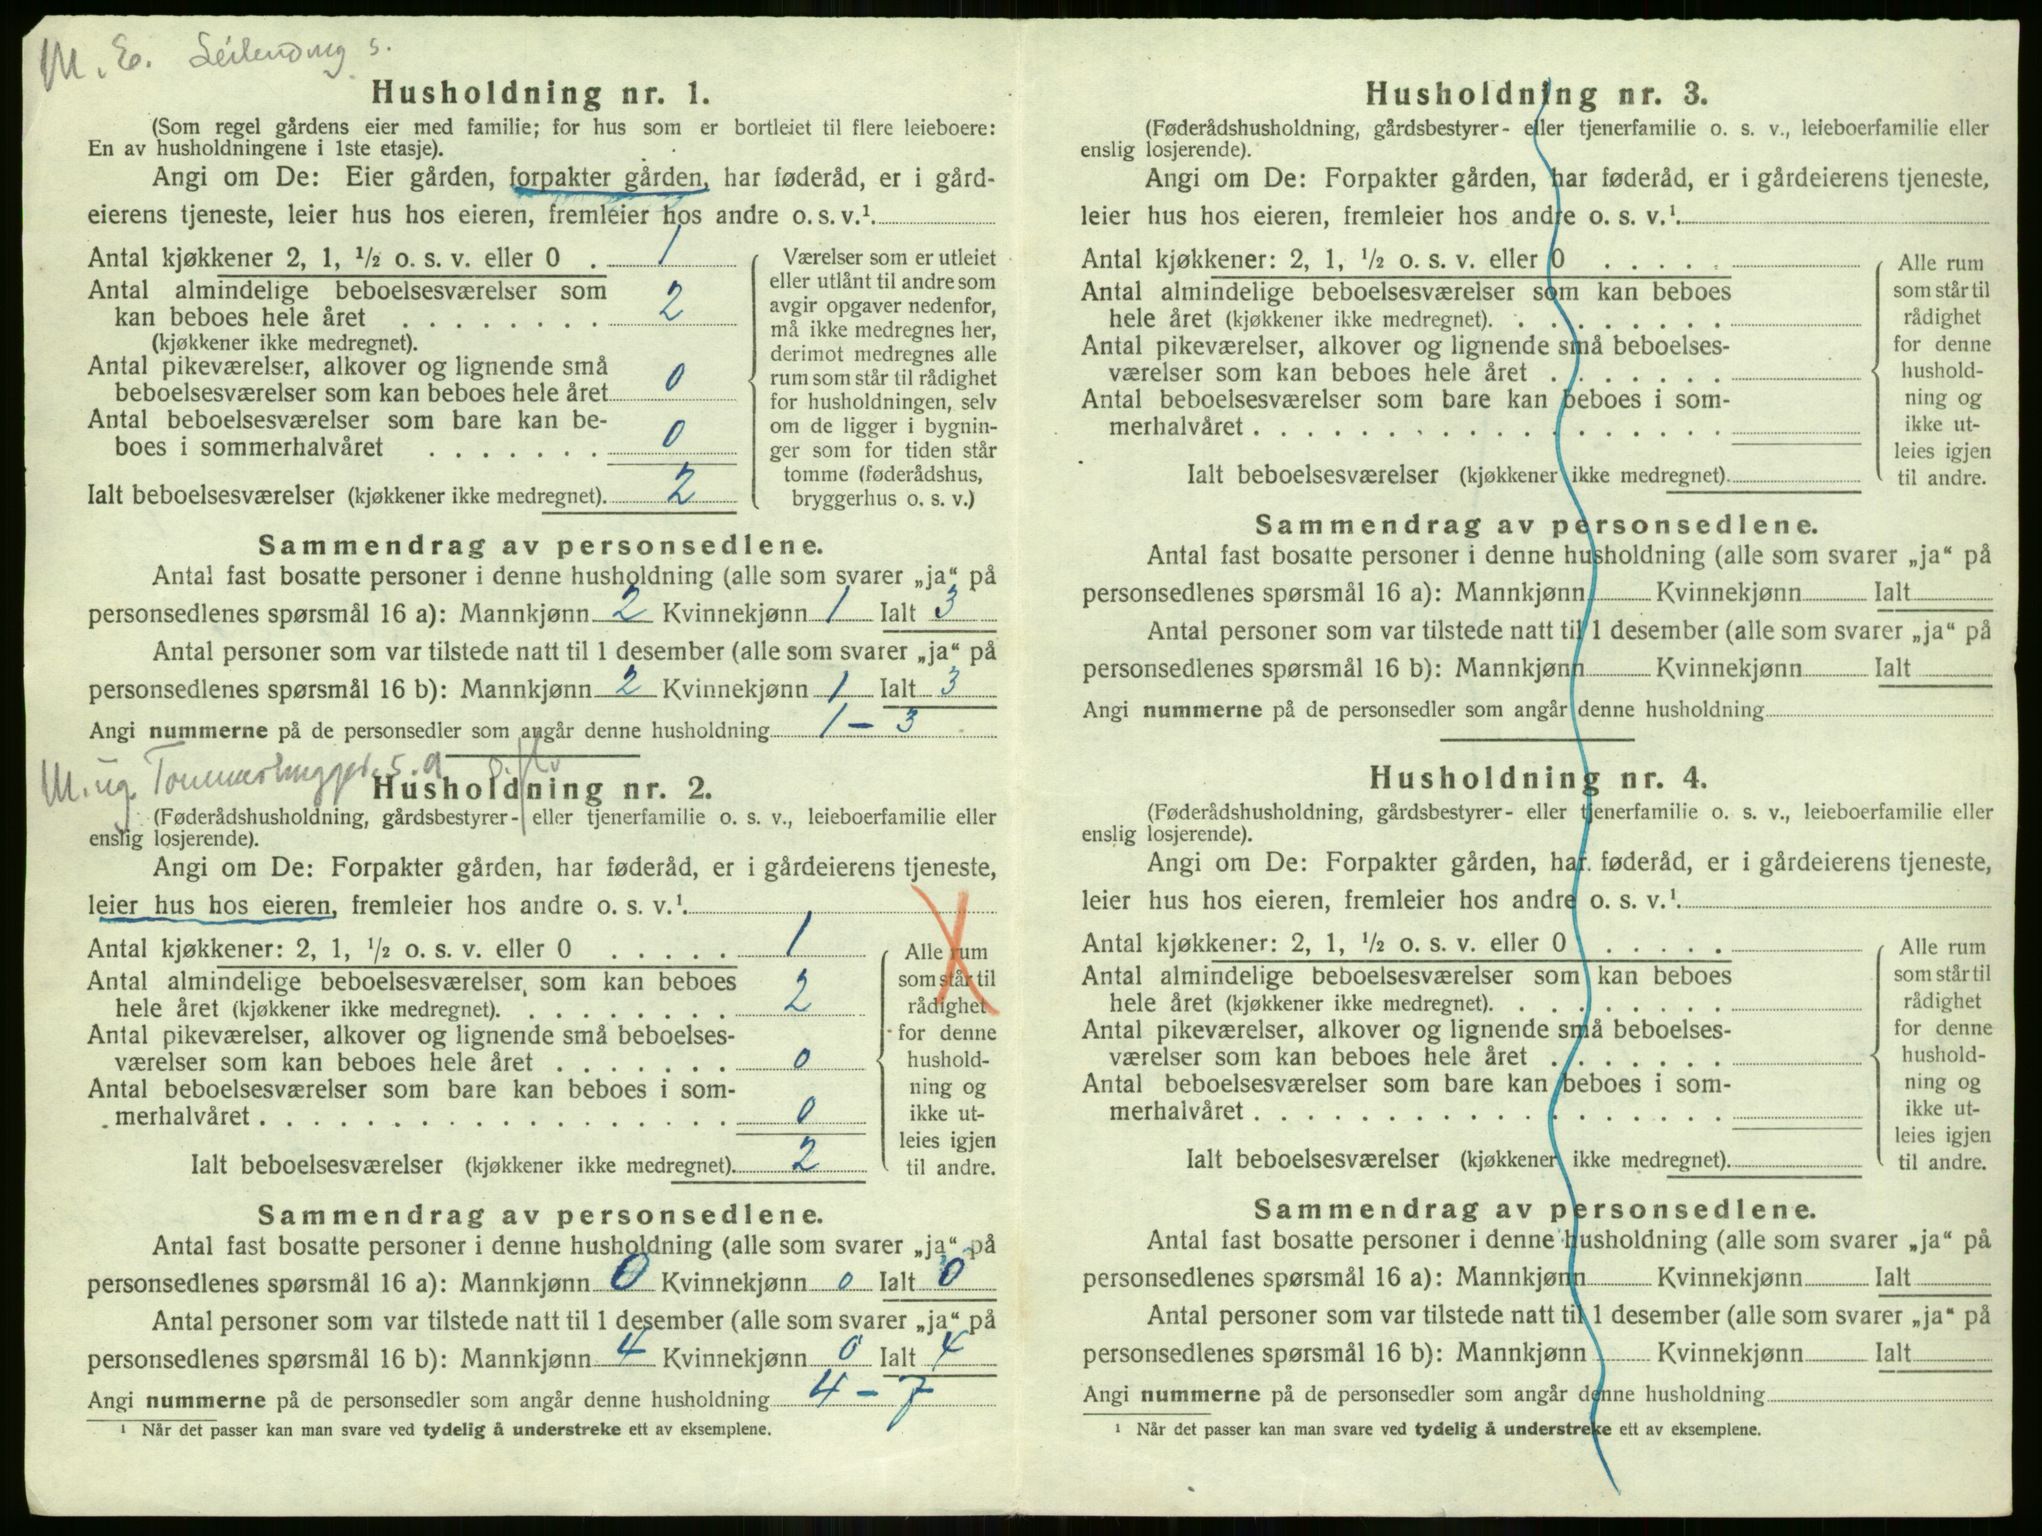 M. E. Leilending s.
Husholdning nr. 1.
(Som regel gårdens eier med familie; for hus som er bortleiet til flere leieboere:
En av husholdningene i 1ste etasje).
Angi om De: Eier gården, forpakter gården, har føderåd, er i gård-
eierens tjeneste, leier hus hos eieren, fremleier hos andre o. s. v.¹
Antal kjøkkener 2, 1, ½ o. s. v. eller 0 . 1
Antal almindelige beboelsesværelser som
kan beboes hele året . . . . . . . . 2
(kjøkkener ikke medregnet).
Antal pikeværelser, alkover og lignende små
beboelsesværelser som kan beboes hele året 0
Antal beboelsesværelser som bare kan be-
boes i sommerhalvåret . . . . . . . 0
Ialt beboelsesværelser (kjøkkener ikke medregnet). 2
Værelser som er utleiet
eller utlånt til andre som
avgir opgaver nedenfor,
må ikke medregnes her,
derimot medregnes alle
rum som står til rådighet
for husholdningen, selv
om de ligger i bygnin-
ger som for tiden står
tomme (føderådshus,
bryggerhus o. s. v.)
Sammendrag av personsedlene.
Antal fast bosatte personer i denne husholdning (alle som svarer „ja“ på
personsedlenes spørsmål 16 a): Mannkjønn 2 Kvinnekjønn 1 Ialt 3
Antal personer som var tilstede natt til 1 desember (alle som svarer „ja“ på
personsedlenes spørsmål 16 b): Mannkjønn 2 Kvinnekjønn 1 Ialt 3
Angi nummerne på de personsedler som angår denne husholdning 1 – 3
M. ug. Tømmerhugger s. a
Husholdning nr. 2.
(Føderådshusholdning, gårdsbestyrer- eller tjenerfamilie o. s. v., leieboerfamilie eller
enslig losjerende).
Angi om De: Forpakter gården, har føderåd, er i gårdeierens tjeneste,
leier hus hos eieren, fremleier hos andre o. s. v.¹
Antal kjøkkener: 2, 1, ½ o. s. v. eller 0 . . . . . 1
Antal almindelige beboelsesværelser, som kan beboes
hele året (kjøkkener ikke medregnet). . . . . . . . . 2
Antal pikeværelser, alkover og lignende små beboelses-
værelser som kan beboes hele året . . . . . . . 0
Antal beboelsesværelser som bare kan beboes i som-
merhalvåret . . . . . . . . . . . . . . . . . . 0
Ialt beboelsesværelser (kjøkkener ikke medregnet). 2
Alle rum
som står til
rådighet
for denne
hushold-
ning og
ikke ut-
leies igjen
til andre.
Sammendrag av personsedlene.
Antal fast bosatte personer i denne husholdning (alle som svarer „ja“ på
personsedlenes spørsmål 16 a): Mannkjønn 0 Kvinnekjønn 0 Ialt 0
Antal personer som var tilstede natt til 1 desember (alle som svarer „ja“ på
personsedlenes spørsmål 16 b): Mannkjønn 4 Kvinnekjønn 0 Ialt 4
Angi nummerne på de personsedler som angår denne husholdning 4 – 7
¹ Når det passer kan man svare ved tydelig å understreke ett av eksemplene.
Husholdning nr. 3.
(Føderådshusholdning, gårdsbestyrer- eller tjenerfamilie o. s. v., leieboerfamilie eller
enslig losjerende).
Angi om De: Forpakter gården, har føderåd, er i gårdeierens tjeneste,
leier hus hos eieren, fremleier hos andre o. s. v.¹
Antal kjøkkener: 2, 1, ½ o. s. v. eller 0 . . . . .
Antal almindelige beboelsesværelser som kan beboes
hele året (kjøkkener ikke medregnet). . . . . . . . .
Antal pikeværelser, alkover og lignende små beboelses-
værelser som kan beboes hele året . . . . . . .
Antal beboelsesværelser som bare kan beboes i som-
merhalvåret . . . . . . . . . . . . . . . . . .
Ialt beboelsesværelser (kjøkkener ikke medregnet).
Alle rum
som står til
rådighet
for denne
hushold-
ning og
ikke ut-
leies igjen
til andre.
Sammendrag av personsedlene.
Antal fast bosatte personer i denne husholdning (alle som svarer „ja“ på
personsedlenes spørsmål 16 a): Mannkjønn Kvinnekjønn Ialt
Antal personer som var tilstede natt til 1 desember (alle som svarer „ja“ på
personsedlenes spørsmål 16 b): Mannkjønn Kvinnekjønn Ialt
Angi nummerne på de personsedler som angår denne husholdning
Husholdning nr. 4.
(Føderådshusholdning, gårdsbestyrer- eller tjenerfamilie o. s. v., leieboerfamilie eller
enslig losjerende).
Angi om De: Forpakter gården, har føderåd, er i gårdeierens tjeneste,
leier hus hos eieren, fremleier hos andre o. s. v.¹
Antal kjøkkener: 2, 1, ½ o. s. v. eller 0 . . . . .
Antal almindelige beboelsesværelser som kan beboes
hele året (kjøkkener ikke medregnet). . . . . . . . .
Antal pikeværelser, alkover og lignende små beboelses-
værelser som kan beboes hele året . . . . . . .
Antal beboelsesværelser som bare kan beboes i som-
merhalvåret . . . . . . . . . . . . . . . . . .
Ialt beboelsesværelser (kjøkkener ikke medregnet).
Alle rum
som står til
rådighet
for denne
hushold-
ning og
ikke ut-
leies igjen
til andre.
Sammendrag av personsedlene.
Antal fast bosatte personer i denne husholdning (alle som svarer „ja“ på
personsedlenes spørsmål 16 a): Mannkjønn Kvinnekjønn Ialt
Antal personer som var tilstede natt til 1 desember (alle som svarer „ja“ på
personsedlenes spørsmål 16 b): Mannkjønn Kvinnekjønn Ialt
Angi nummerne på de personsedler som angår denne husholdning
¹ Når det passer kan man svare ved tydelig å understreke ett av eksemplene.